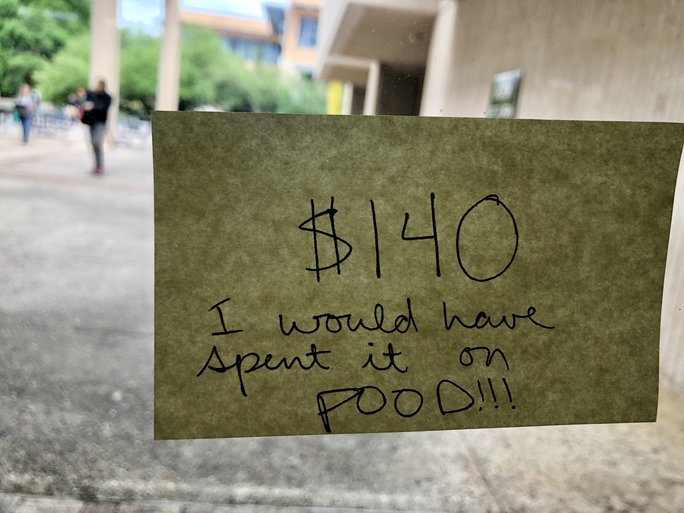 $140
I would have
spent it on
FOOD!!!